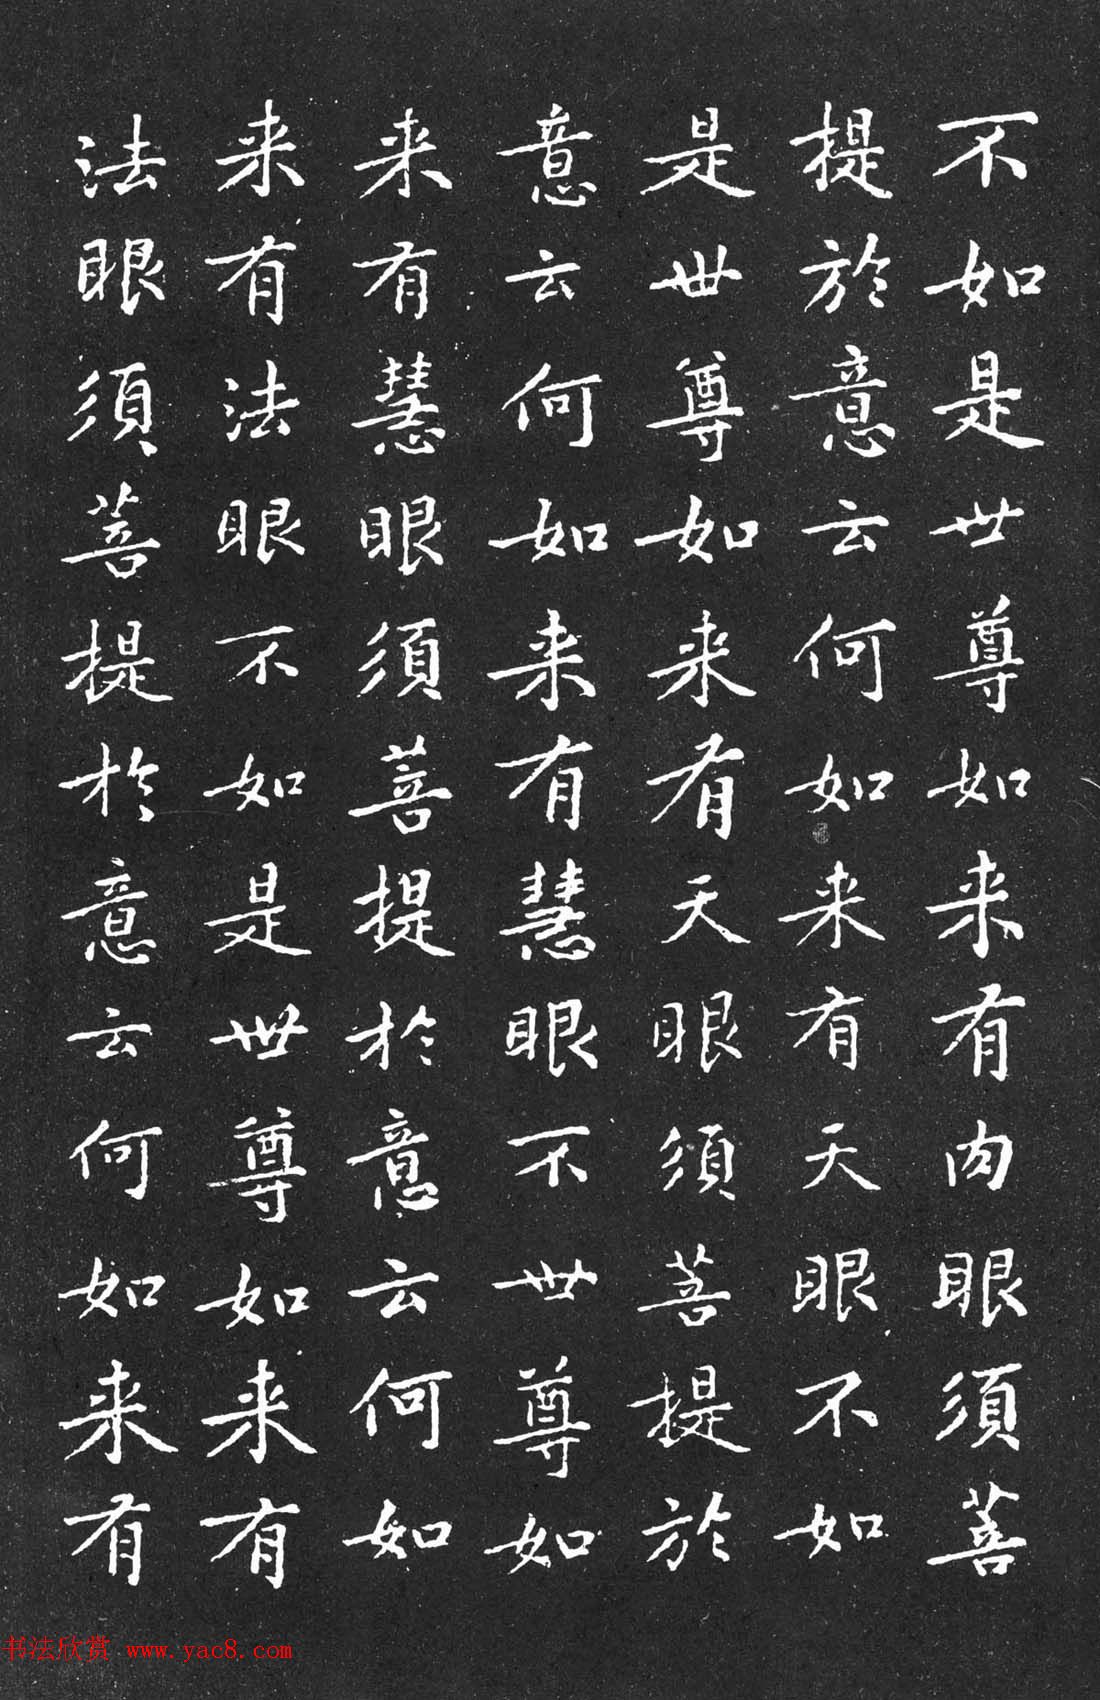 不如是世尊如来有肉眼須菩
提於意云何如来有天眼不如
是世尊如来有天眼須菩提於
意云何如来有慧眼不世尊如
来有慧眼須菩提於意云何如
来有法眼不如是世尊如来有
法眼須菩提於意云何如来有
书法欣赏 www.yac8.com